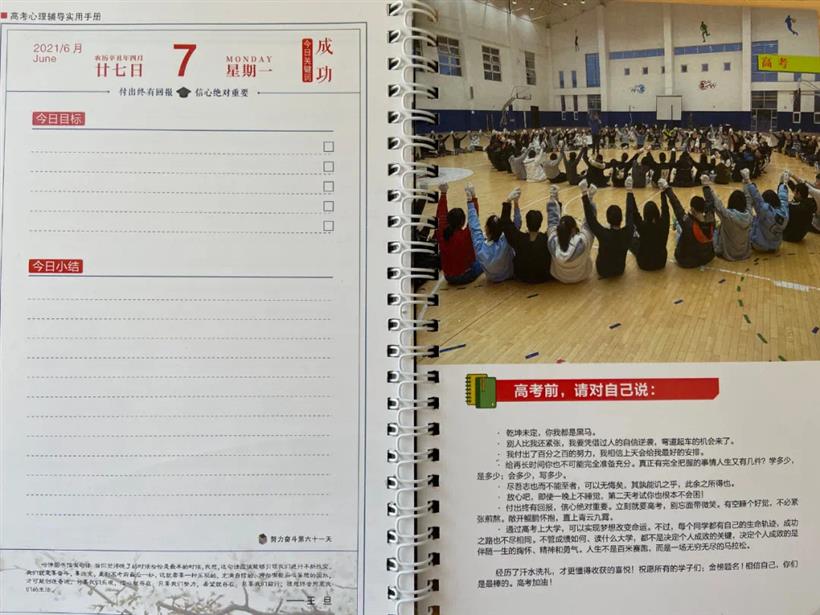 高考心理辅导实用手册
2021/6月
June
农历辛丑年四月
廿七日
7
MONDAY
星期一
今日关键词
成功
付出终有回报 信心绝对重要
今日目标
今日小结
努力奋斗第六十一天
——王 旦
高 考
高考前，请对自己说：
· 乾坤未定，你我都是黑马。
· 别人比我还紧张，我要凭借过人的自信逆袭，弯道起车的机会来了。
· 我付出了百分之百的努力，我相信上天会给我最好的安排。
· 给再长时间你也不可能完全准备充分。真正有完全把握的事情人生又有几件？学多少，
是多少；会多少，写多少。
· 尽吾志也而不能至者，可以无悔矣，其孰能讥之乎，此余之所得也。
· 放心吧，即使一晚上不睡觉，第二天考试你也根本不会困！
· 付出终有回报，信心绝对重要。立刻就要高考，别忘面带微笑。有空睡个好觉，不必紧
张煎熬。敞开鲲鹏怀抱，直上青云九霄。
· 通过高考上大学，可以实现梦想改变命运。不过，每个同学都有自己的生命轨迹，成功
之路也不尽相同，不管成绩如何、读什么大学，都不是决定个人成败的关键，决定个人成败的是
伴随一生的胸怀、精神和勇气。人生不是百米赛跑，而是一场无穷无尽的马拉松。
经历了汗水洗礼，才更懂得收获的喜悦！祝愿所有的学子们；金榜题名！相信自己，你们
是最棒的。高考加油！